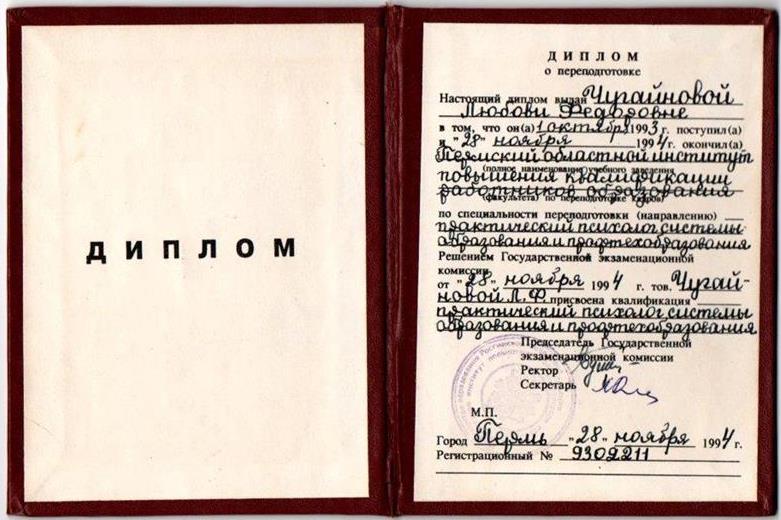 ДИПЛОМ
ДИПЛОМ
о переподготовке
Настоящий диплом выдан Чугайновой
Любови Федоровне
в том, что он(а) 1 октября 1993 г. поступил(а)
и "28" ноября 1994 г. окончил(а)
Пермский областной институт
(полное наименование учебного заведения
повышения квалификации
работников образования
(факультета) по переподготовке кадров)
по специальности переподготовки (направлению)
практический психолог системы
образования и профтехобразования
Решением Государственной экзаменационной
комиссии
от "28" ноября 1994 г. тов. Чугай-
новой Л.Ф. присвоена квалификация
практический психолог системы
образования и профтехобразования
Председатель Государственной
экзаменационной комиссии
Ректор
Секретарь
М.П.
Город Пермь "28" ноября 1994 г.
Регистрационный № 9302211